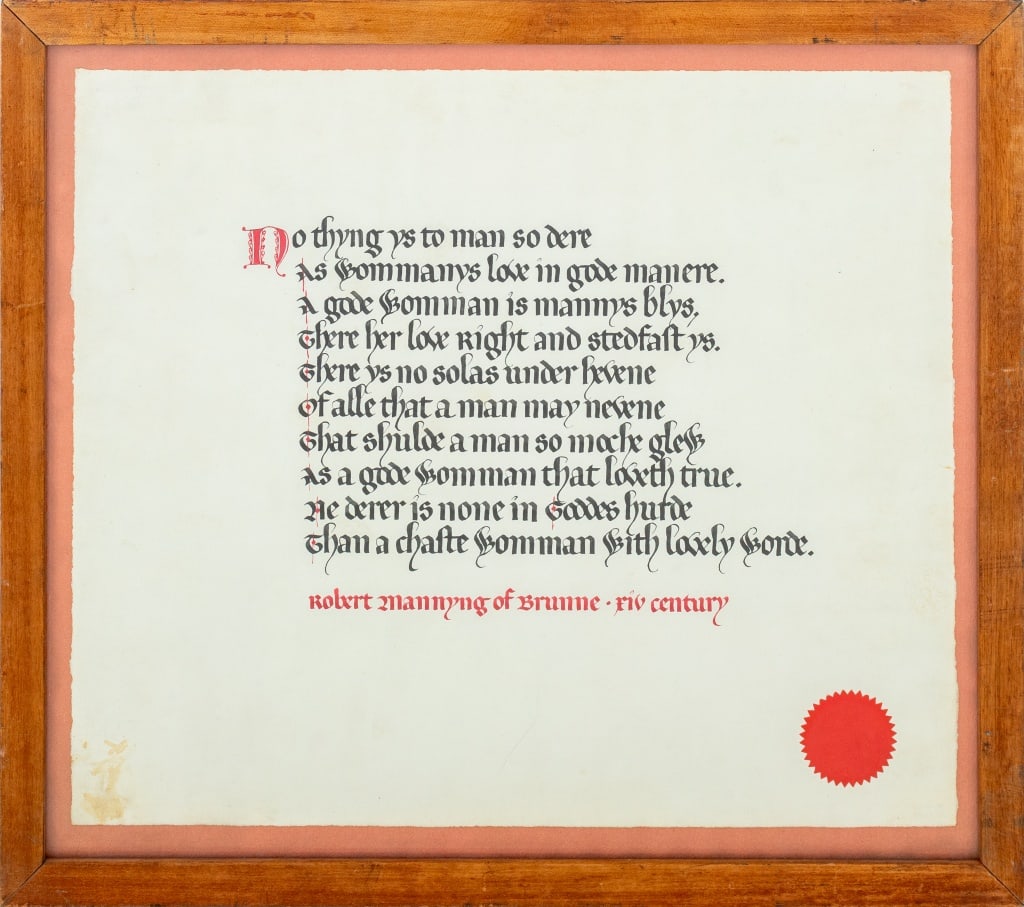 No thyng ys to man so dere
As Wommanys love in gode manere.
A gode Womman is mannys blys,
There her love Right and stedfast ys.
There ys no solas under hevene
Of alle that a man may nevene
That shulde a man so moche glew
As a gode Womman that loveth true.
Ne derer is none in Goddes hurde
Than a chaste Womman With lovely Worde.
Robert Mannyng of Brunne · xiv century